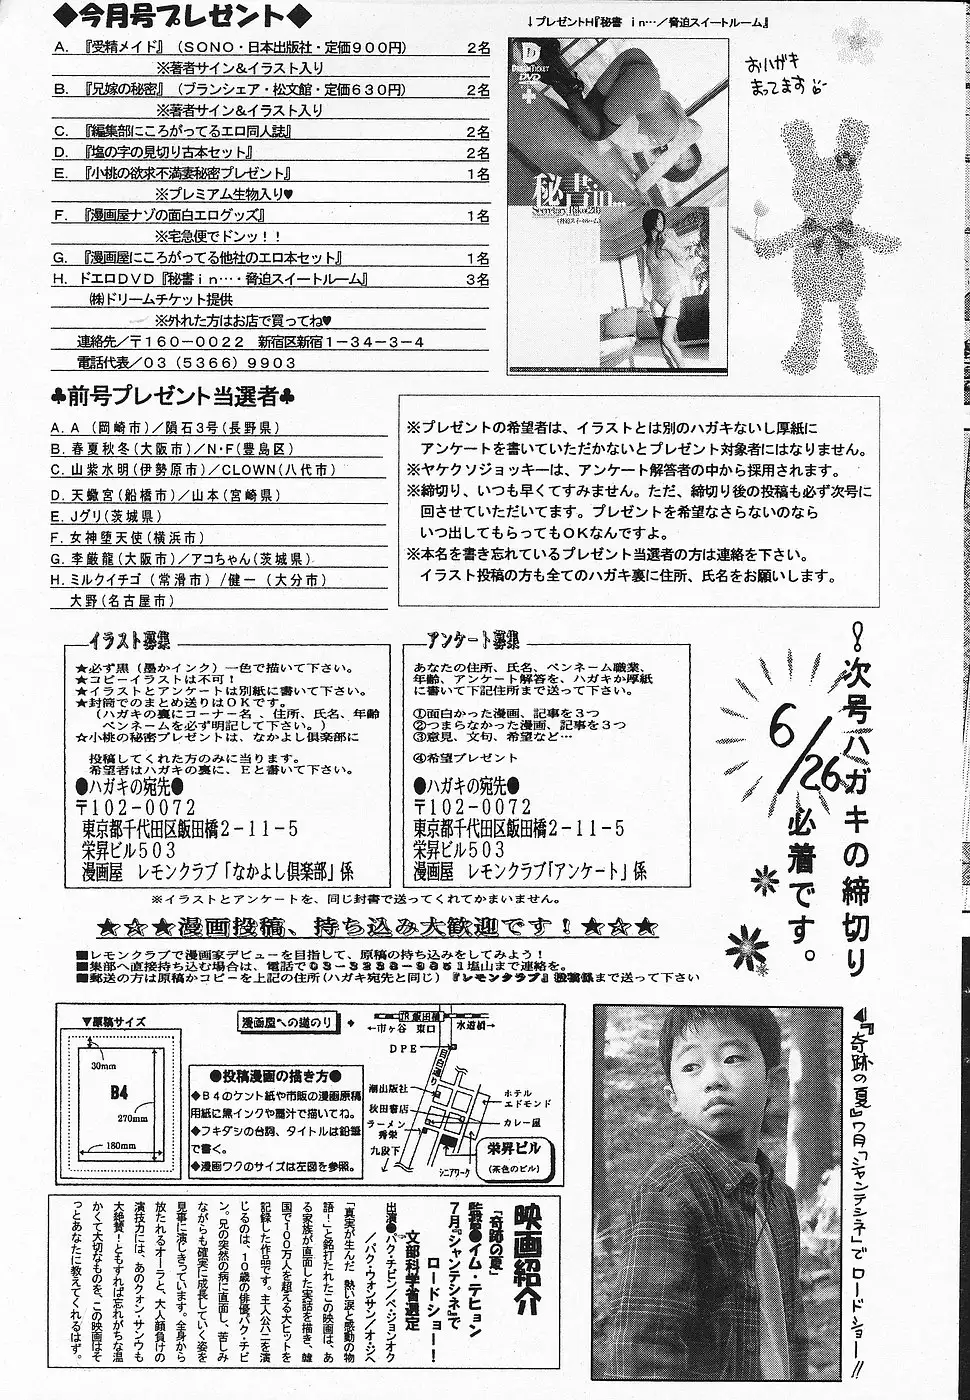 ◆今月号プレゼント◆
A. 『受精メイド』(SONO・日本出版社・定価900円) 2名
※著者サイン&イラスト入り
B. 『兄嫁の秘密』(ブランシェア・松文館・定価630円) 2名
※著者サイン&イラスト入り
C. 『編集部にころがってるエロ同人誌』 2名
D. 『塩の字の見切り古本セット』 2名
E. 『小桃の欲求不満妻秘密プレゼント』 1名
※プレミアム生物入り♥
F. 『漫画屋ナゾの面白エログッズ』 1名
※宅急便でドンッ!!
G. 『漫画屋にころがってる他社のエロ本セット』 1名
H. ドエロDVD『秘書in…・脅迫スイートルーム』 3名
㈱ドリームチケット提供
※外れた方はお店で買ってね♥
連絡先/〒160-0022 新宿区新宿1-34-3-4
電話代表/03(5366)9903
↓プレゼントH『秘書 in…/脅迫スイートルーム』
D
DREAM TICKET
DVD
秘書in...
(脅迫スイートルーム)
おハガキ
まってます
♣前号プレゼント当選者♣
A. A (岡崎市)/隕石3号(長野県)
B. 春夏秋冬(大阪市)/N・F(豊島区)
C. 山紫水明(伊勢原市)/CLOWN(八代市)
D. 天蠍宮(船橋市)/山本(宮崎県)
E. Jグリ(茨城県)
F. 女神堕天使(横浜市)
G. 李厳龍(大阪市)/アコちゃん(茨城県)
H. ミルクイチゴ(常滑市)/健一(大分市)
大野(名古屋市)
※プレゼントの希望者は、イラストとは別のハガキないし厚紙に
アンケートを書いていただかないとプレゼント対象者にはなりません。
※ヤケクソジョッキーは、アンケート解答者の中から採用されます。
※締切り、いつも早くてすみません。ただ、締切り後の投稿も必ず次号に
回させていただいてます。プレゼントを希望なさらないのなら
いつ出してもらってもOKなんですよ。
※本名を書き忘れているプレゼント当選者の方は連絡を下さい。
イラスト投稿の方も全てのハガキ裏に住所、氏名をお願いします。
イラスト募集
★必ず黒(墨かインク)一色で描いて下さい。
★コピーイラストは不可!
★イラストとアンケートは別紙に書いて下さい。
★封筒でのまとめ送りはOKです。
(ハガキの裏にコーナー名、住所、氏名、年齢
ペンネームを必ず明記して下さい。)
★小桃の秘密プレゼントは、なかよし倶楽部に
投稿してくれた方のみに当ります。
希望者はハガキの裏に、Eと書いて下さい。
●ハガキの宛先●
〒102-0072
東京都千代田区飯田橋2-11-5
栄昇ビル503
漫画屋 レモンクラブ「なかよし倶楽部」係
アンケート募集
あなたの住所、氏名、ペンネーム職業、
年齢、アンケート解答を、ハガキか厚紙
に書いて下記住所まで送って下さい。
①面白かった漫画、記事を3つ
②つまらなかった漫画、記事を3つ
③意見、文句、希望など…
④希望プレゼント
●ハガキの宛先●
〒102-0072
東京都千代田区飯田橋2-11-5
栄昇ビル503
漫画屋 レモンクラブ「アンケート」係
次号ハガキの締切り
6/26必着です。
※イラストとアンケートを、同じ封書で送ってくれてかまいません。
☆☆★漫画投稿、持ち込み大歓迎です!★☆☆
■レモンクラブで漫画家デビューを目指して、原稿の持ち込みをしてみよう!
■集部へ直接持ち込む場合は、電話で塩山まで連絡を。
■郵送の方は原稿かコピーを上記の住所(ハガキ宛先と同じ)『レモンクラブ』投稿係まで送って下さい
▼原稿サイズ
30mm
B4
270mm
180mm
漫画屋への道のり
●投稿漫画の描き方●
◆B4のケント紙や市販の漫画原稿
用紙に黒インクや墨汁で描いてね。
◆フキダシの台詞、タイトルは鉛筆
で書く。
◆漫画ワクのサイズは左図を参照。
JR飯田橋
←市ヶ谷 東口
水道橋→
DPE
目白通り
潮出版社
秋田書店
ラーメン
秀栄
九段下
シニアワーク
ホテル
エドモンド
カレー屋
栄昇ビル
(茶色のビル)
▲『奇跡の夏』7月「シャンテシネ」でロードショー!!
映画紹介
『奇跡の夏』
監督●イム・テヒョン
7月『シャンテシネ』で
ロードショー!
文部科学省選定
出演●パク・チビン/ペ・ジョンオク
/パク・ウォンサン/オ・ジヘ
「真実が生んだ、熱い涙と感動の物
語!」と銘打たれたこの映画は、あ
る家族が直面した実話を描き、韓
国で100万人を超える大ヒットを
記録した作品です。主人公ハニを演
じるのは、10歳の俳優パク・チビ
ン。兄の突然の病に直面し、苦しみ
ながらも確実に成長していく姿を
見事に演じきっています。全身から
放たれるオーラと、大人顔負けの
演技力には、あのクォン・サンウも
大絶賛!ともすれば忘れがちな温
かくて大切なものを、この映画はそ
っとあなたに教えてくれるはず。